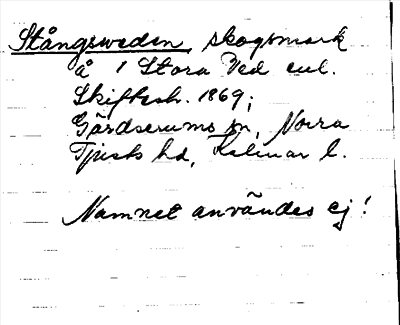 Stångsweden, skogsmark
å 1 Stora Ved enl.
Skiftesh. 1869;
Gärdserums sn, Norra
Tjusts hd, Kalmar l.
Namnet användes ej!